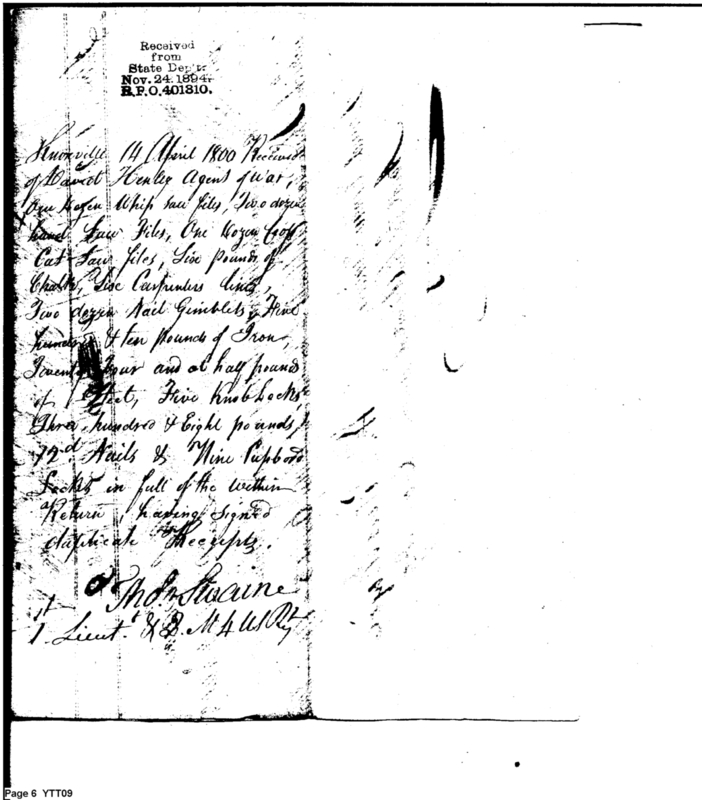 Received
from
State Dep't.
Nov. 24. 1894.
R.P.O. 401310.
Knoxville 14 April 1800 Received
of David Henley Agent of War,
One dozen Whip saw files, Two dozen
hand Saw Files, One dozen Cross
Cut Saw files, Six pounds of
Chalk, Six Carpenters lines,
Two dozen Nail Gimblets, Five
hundred & ten pounds of Iron,
Twenty four and a half pounds
of Steel, Five Knob Locks,
Three hundred & Eight pounds,
12d Nails & Nine Cupboard
Locks in full of the within
Return, having signed
duplicate Receipts.
Swaine
1st Lieut. & Q. M 4 US Rt
Page 6 YTT09